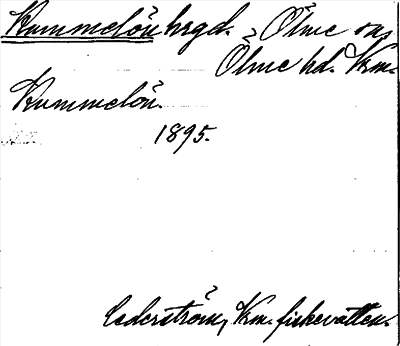 Kummelön hrgd. Ölme sn,
Ölme hd. Krm.
Kummelön.
1895.
Cederström, Krm. fiskevatten.